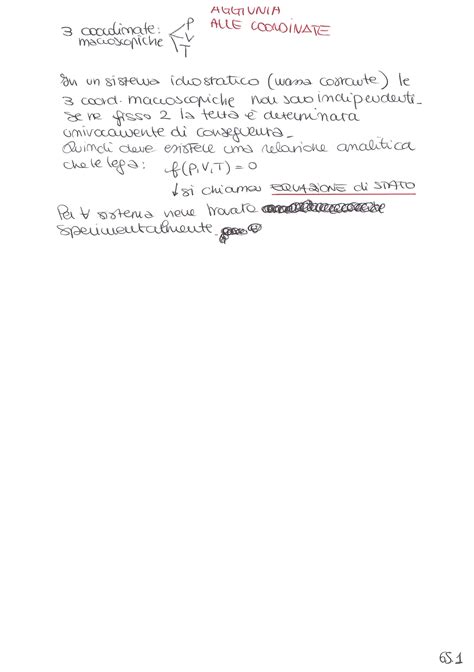 AGGIUNTA
ALLE COORDINATE
3 coordinate:
macroscopiche
P
V
T
In un sistema idrostatico (massa costante) le
3 coord. macroscopiche non sono indipendenti.
Se ne fisso 2 la terza è determinata
univocamente di conseguenza.
Quindi deve esistere una relazione analitica
che le lega: f(P,V,T) = 0
↓ si chiama EQUAZIONE di STATO
Per ∀ sistema viene trovata
sperimentalmente.
65.1